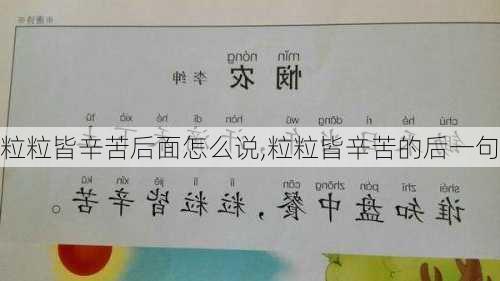 mǐn nóng
悯 农 李 绅
chú hé rì dāng wǔ hàn dī hé xià tǔ
粒粒皆辛苦后面怎么说,粒粒皆辛苦的后一句
shéi zhī pán zhōng cān lì lì jiē xīn kǔ
谁 知 盘 中 餐，粒 粒 皆 辛 苦。